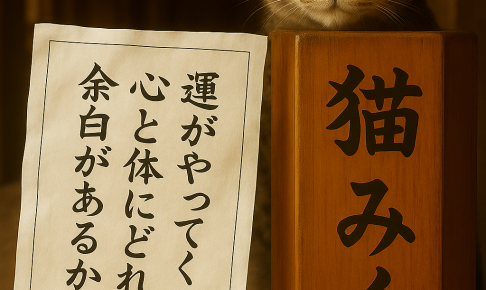 猫み
運がやってく
心と体にどれ
余白があるか